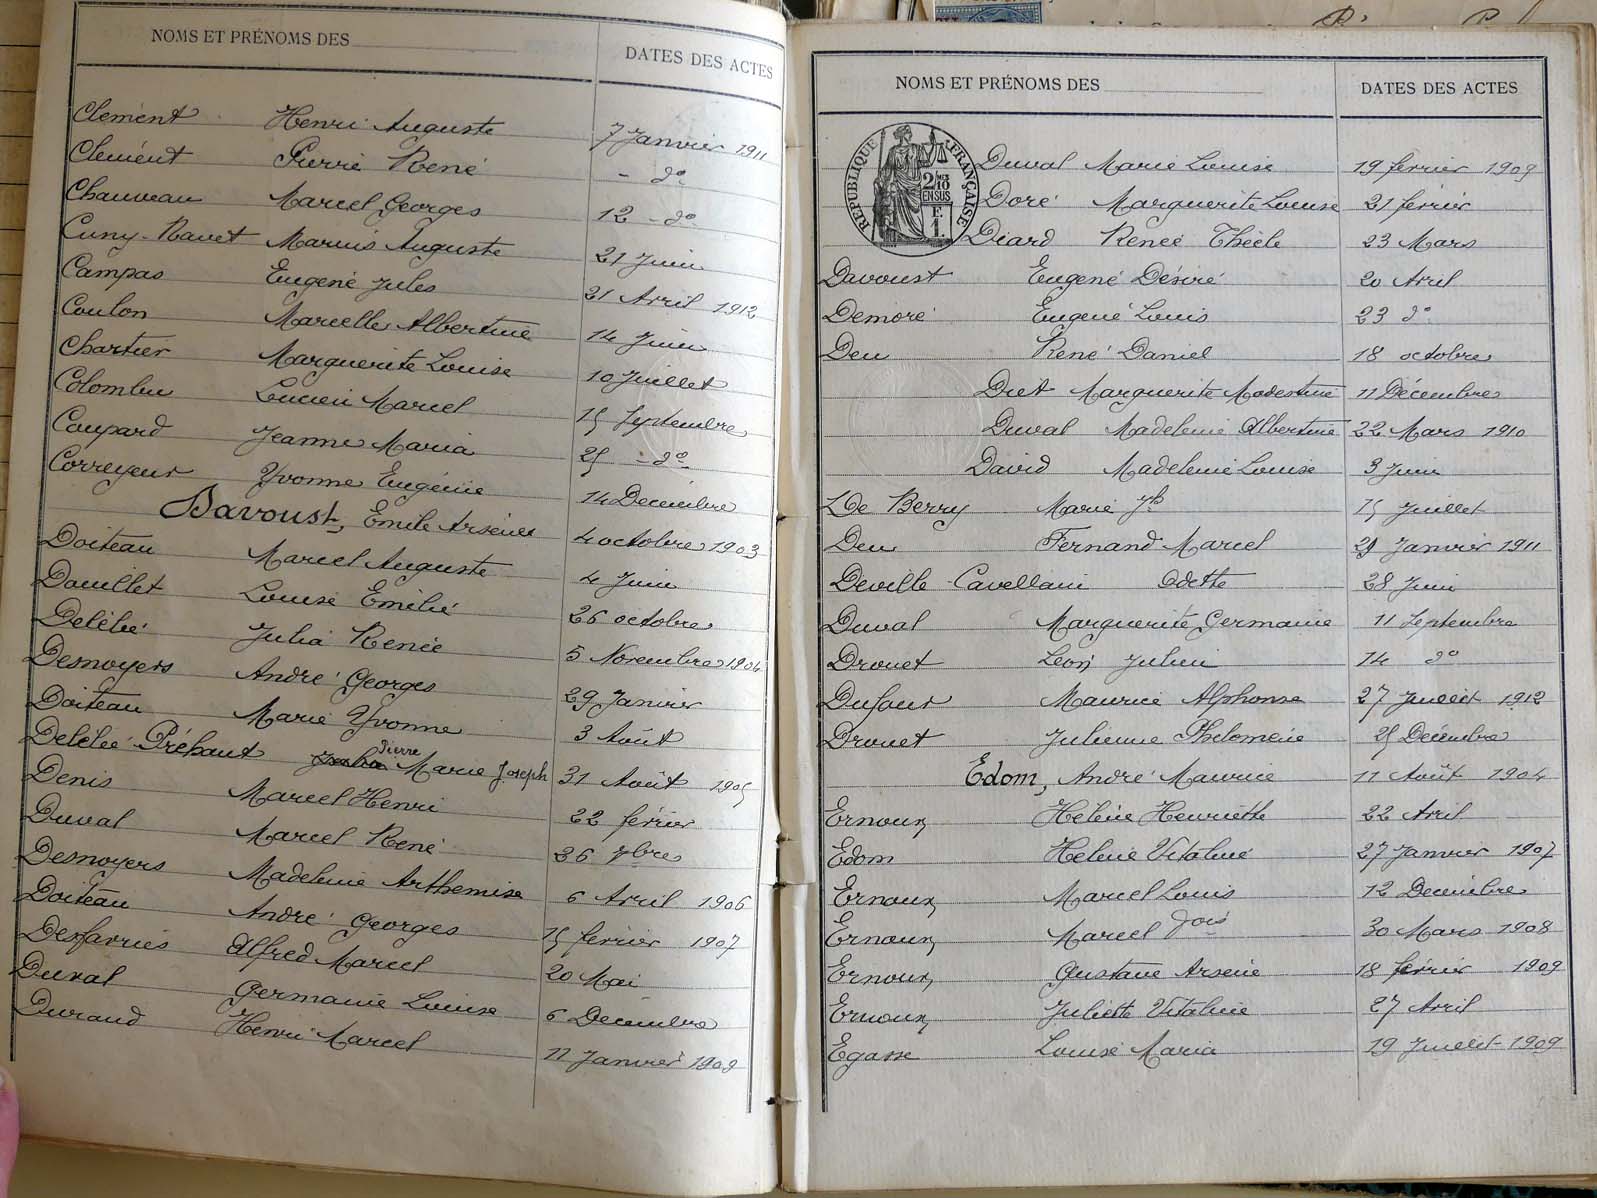 NOMS ET PRÉNOMS DES DATES DES ACTES
Clément Henri Auguste 7 Janvier 1911
Clément Pierre René - do
Chauveau Marcel Georges 12 - do
Cuny-Ravet Marius Auguste 21 Juin
Campas Eugène Jules 21 Avril 1912
Coulon Marcelle Albertine 14 Juin
Chartier Marguerite Louise 10 Juillet
Colombu Lucien Marcel 15 Septembre
Coupard Jeanne Maria 25 - do
Correyeur Yvonne Eugénie 14 Décembre
Davoust, Emile Arsène 4 octobre 1903
Doiteau Marcel Auguste 4 Juin
Douillet Louise Emélie 26 octobre
Delélée Julia Renée 5 Novembre 1904
Desnoyers André Georges 29 Janvier
Doiteau Marie Yvonne 3 Août
Delélée Préhaut Pierre Marie Joseph 31 Août 1905
Denis Marcel Henri 22 février
Duval Marcel René 26 7bre
Desnoyers Madeleine Arthemise 6 Avril 1906
Doiteau André Georges 15 février 1907
Alfred Marcel 20 Mai
Duval Germaine Louise 6 Décembre
Durand Henri Marcel 11 Janvier 1909
NOMS ET PRÉNOMS DES DATES DES ACTES
RÉPUBLIQUE FRANÇAISE
2/10 EN SUS
F. 1.
Duval Marie Louise 19 février 1909
Doré Marguerite Louise 21 février
Diard Renée Thècle 23 Mars
Davoust Eugène Désiré 20 Avril
Demoré Eugène Louis 23 do
Deu René Daniel 18 octobre
Diet Marguerite Modestine 11 Décembre
Duval Madeleine Albertine 22 Mars 1910
David Madeleine Louise 3 Juin
De Berry Marie Jh 15 Juillet
Deu Fernand Marcel 29 Janvier 1911
Deville-Cavellani Odette 28 Juin
Duval Marguerite Germaine 11 Septembre
Drouet Léon Julien 14 do
Dufour Maurice Alphonse 27 Juillet 1912
Drouet Julienne Philomène 25 Décembre
Edom, André Maurice 11 Août 1904
Ernoux Hélène Henriette 22 Avril
Edom Hélène Vitaline 27 Janvier 1907
Ernoux Marcel Louis 12 Décembre
Ernoux Marcel 30 Mars 1908
Ernoux Gustave Arsène 18 février 1909
Ernoux Juliette Vitaline 27 Avril
Egasse Louise Maria 19 Juillet 1909